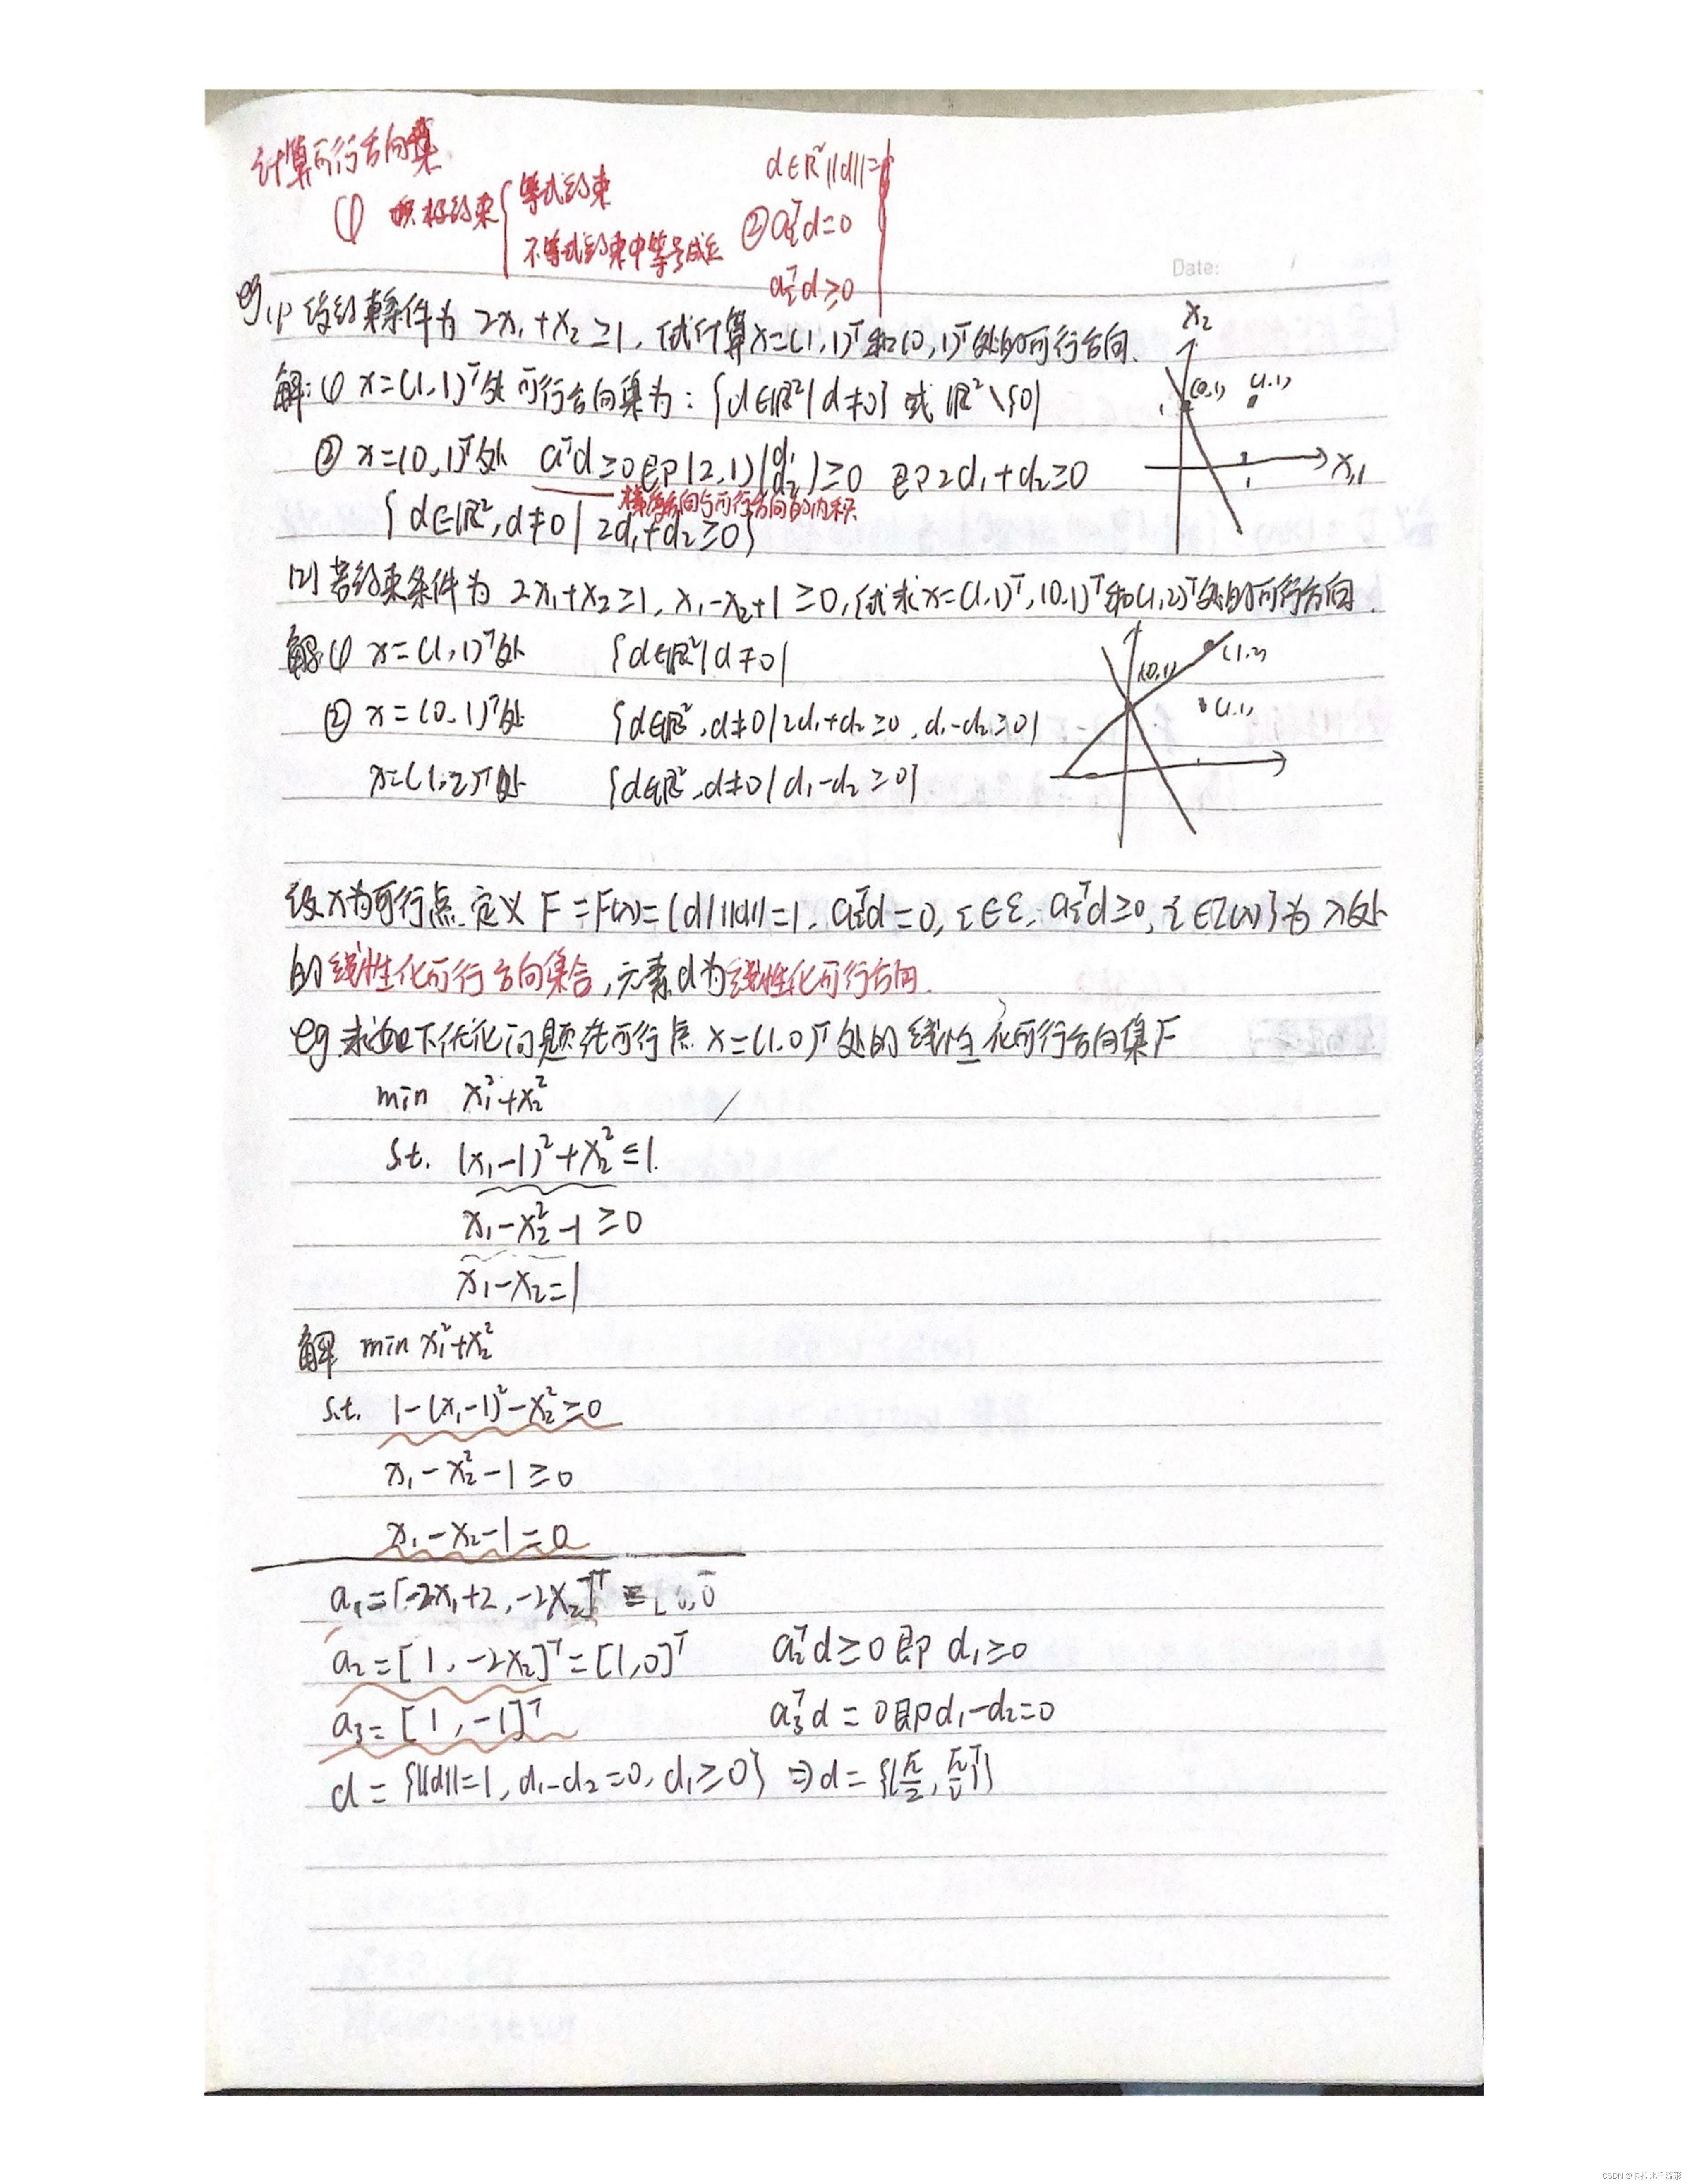 计算可行方向集
① 积极约束 { 等式约束
不等式约束中等号成立
d∈ℝ² ||d||=1
② aᵢᵀd=0
aᵢᵀd≥0
Date:
eg. (1) 设约束条件为 2x₁+x₂≥1, 试计算x=(1,1)ᵀ和(0,1)ᵀ处的可行方向.
解: ① x=(1,1)ᵀ处 可行方向集为: {d∈ℝ²|d≠0} 或 ℝ²\{0}
② x=(0,1)ᵀ处 aᵀd≥0即(2,1)(d₁ d₂)≥0 即2d₁+d₂≥0
梯度方向与可行方向的内积
{d∈ℝ², d≠0 | 2d₁+d₂≥0}
x₂
(0,1) (1,1)
1
x₁
1
(2) 若约束条件为 2x₁+x₂≥1, x₁-x₂+1≥0, 试求x=(1,1)ᵀ, (0,1)ᵀ和(1,2)ᵀ处的可行方向.
解: ① x=(1,1)ᵀ处 {d∈ℝ²|d≠0}
② x=(0,1)ᵀ处 {d∈ℝ², d≠0|2d₁+d₂≥0, d₁-d₂≥0}
x=(1,2)ᵀ处 {d∈ℝ², d≠0|d₁-d₂≥0}
(1,2)
(0,1)
(1,1)
设x为可行点. 定义 F=F(x)={d| ||d||=1, aᵢᵀd=0, i∈ℰ, aᵢᵀd≥0, i∈I(x)}为x处
的线性化可行方向集合, 元素d为线性化可行方向.
eg 求如下优化问题在可行点 x=(1,0)ᵀ处的线性化可行方向集F
min x₁²+x₂²
s.t. (x₁-1)²+x₂²≤1.
x₁-x₂²-1≥0
x₁-x₂=1
解 min x₁²+x₂²
s.t. 1-(x₁-1)²-x₂²≥0
x₁-x₂²-1≥0
x₁-x₂-1=0
a₁=[-2x₁+2, -2x₂]ᵀ
a₂=[1, -2x₂]ᵀ=[1,0]ᵀ a₂ᵀd≥0即 d₁≥0
a₃=[1, -1]ᵀ a₃ᵀd=0即d₁-d₂=0
d={||d||=1, d₁-d₂=0, d₁≥0} ⇒d=
CSDN @卡拉比丘流形